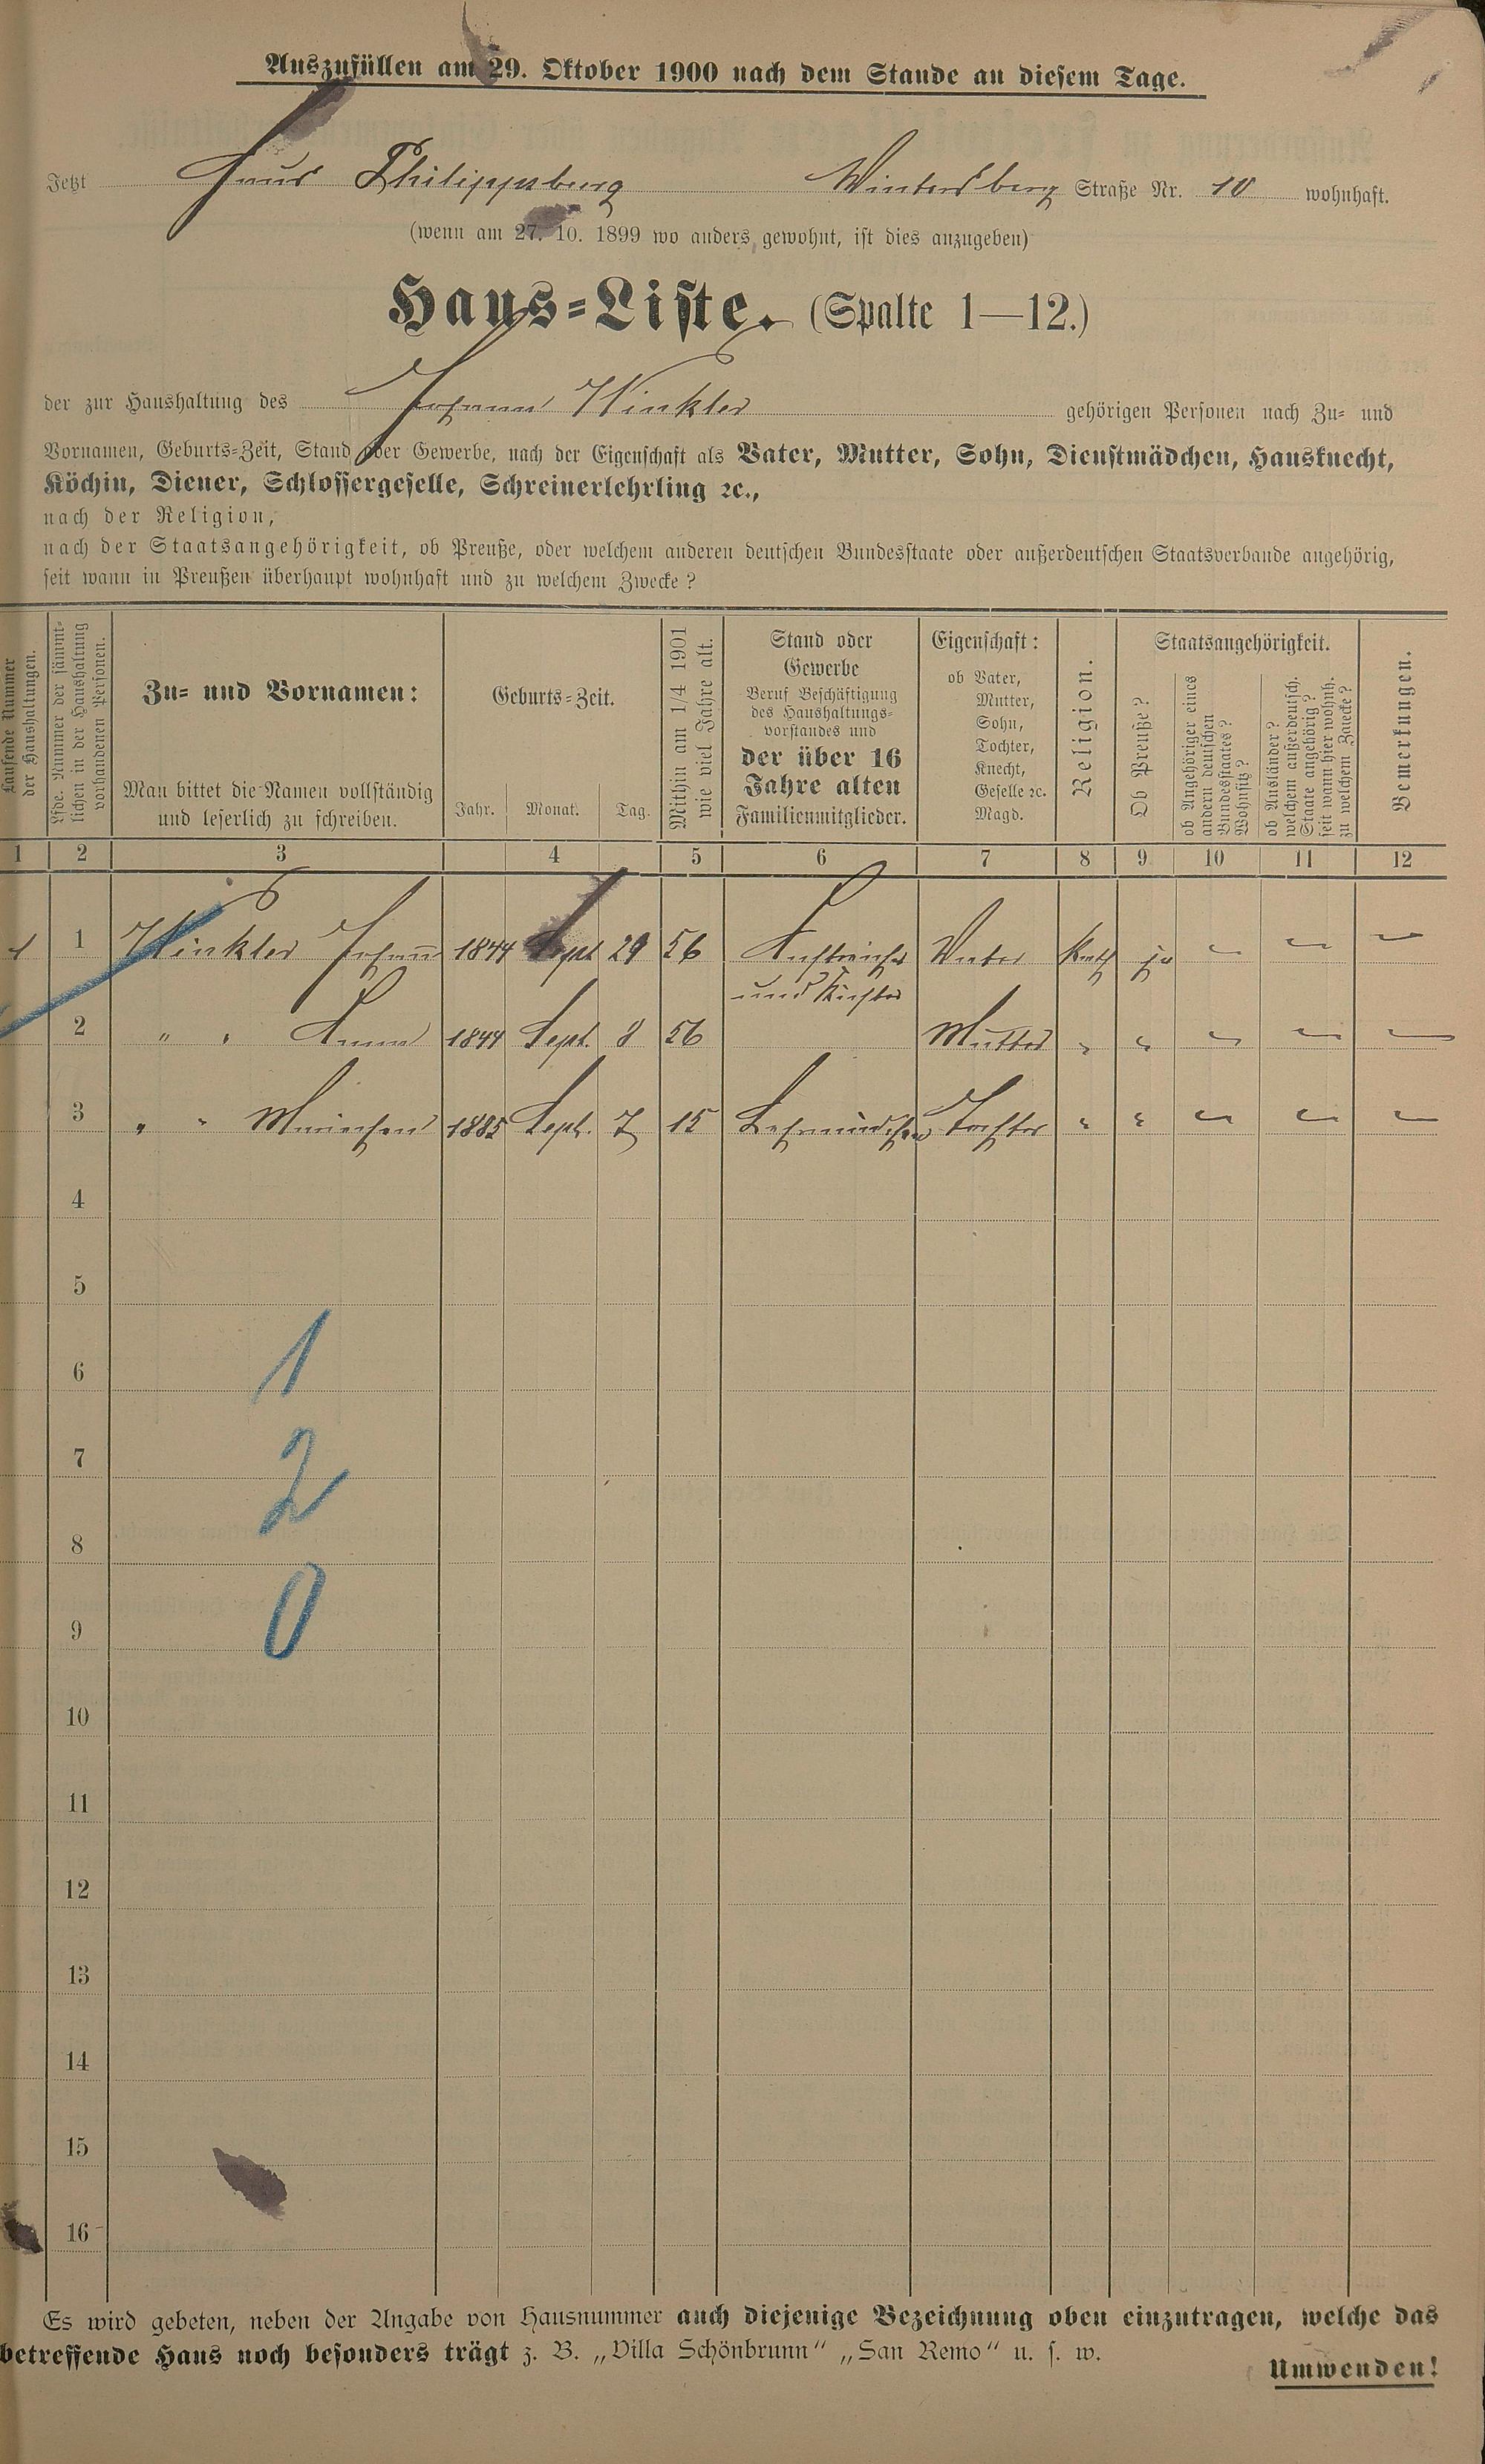 Auszufüllen am 29. Oktober 1900 nach dem Stande an diesem Tage.
Jetzt Haus Philippsburg Wintersberg Straße Nr. 10 wohnhaft.
(wenn am 27. 10. 1899 wo anders gewohnt, ist dies anzugeben)
Haus-Liste. (Spalte 1—12.)
der zur Haushaltung des Johann Winkler gehörigen Personen nach Zu- und
Vornamen, Geburts-Zeit, Stand oder Gewerbe, nach der Eigenschaft als Vater, Mutter, Sohn, Dienstmädchen, Hausknecht,
Köchin, Diener, Schlossergeselle, Schreinerlehrling ꝛc.,
nach der Religion,
nach der Staatsangehörigkeit, ob Preuße, oder welchem anderen deutschen Bundesstaate oder außerdeutschen Staatsverbande angehörig,
seit wann in Preußen überhaupt wohnhaft und zu welchem Zwecke?
Laufende Nummer
der Haushaltungen.
Lfde. Nummer der sämmt-
lichen in der Haushaltung
vorhandenen Personen.
Zu- und Vornamen:
Man bittet die Namen vollständig
und leserlich zu schreiben.
Geburts-Zeit.
Jahr. Monat. Tag.
Mithin am 1/4 1901
wie viel Jahre alt.
Stand oder
Gewerbe
Beruf Beschäftigung
des Haushaltungs-
vorstandes und
der über 16
Jahre alten
Familienmitglieder.
Eigenschaft:
ob Vater,
Mutter,
Sohn,
Tochter,
Knecht,
Geselle ꝛc.
Magd.
Religion.
Staatsangehörigkeit.
Ob Preuße?
ob Angehöriger eines
andern deutschen
Bundesstaates?
Wohnsitz?
ob Ausländer?
welchem außerdeutsch.
Staate angehörig?
seit wann hier wohnh.
zu welchem Zwecke?
Bemerkungen.
1 2 3 4 5 6 7 8 9 10 11 12
1 1 Winkler Johann 1844 Sept 29 56 Anstreicher Vater Kath ja — — —
und Küster
2 " " Anna 1844 Sept. 8 56 Mutter " " — — —
3 " " 1885 Sept. 7 15 Lehrmädchen Tochter " " — — —
4
5
6 1
7 2
8
9 0
10
11
12
13
14
15
16
Es wird gebeten, neben der Angabe von Hausnummer auch diejenige Bezeichnung oben einzutragen, welche das
betreffende Haus noch besonders trägt z. B. „Villa Schönbrunn“ „San Remo“ u. s. w.
Umwenden!